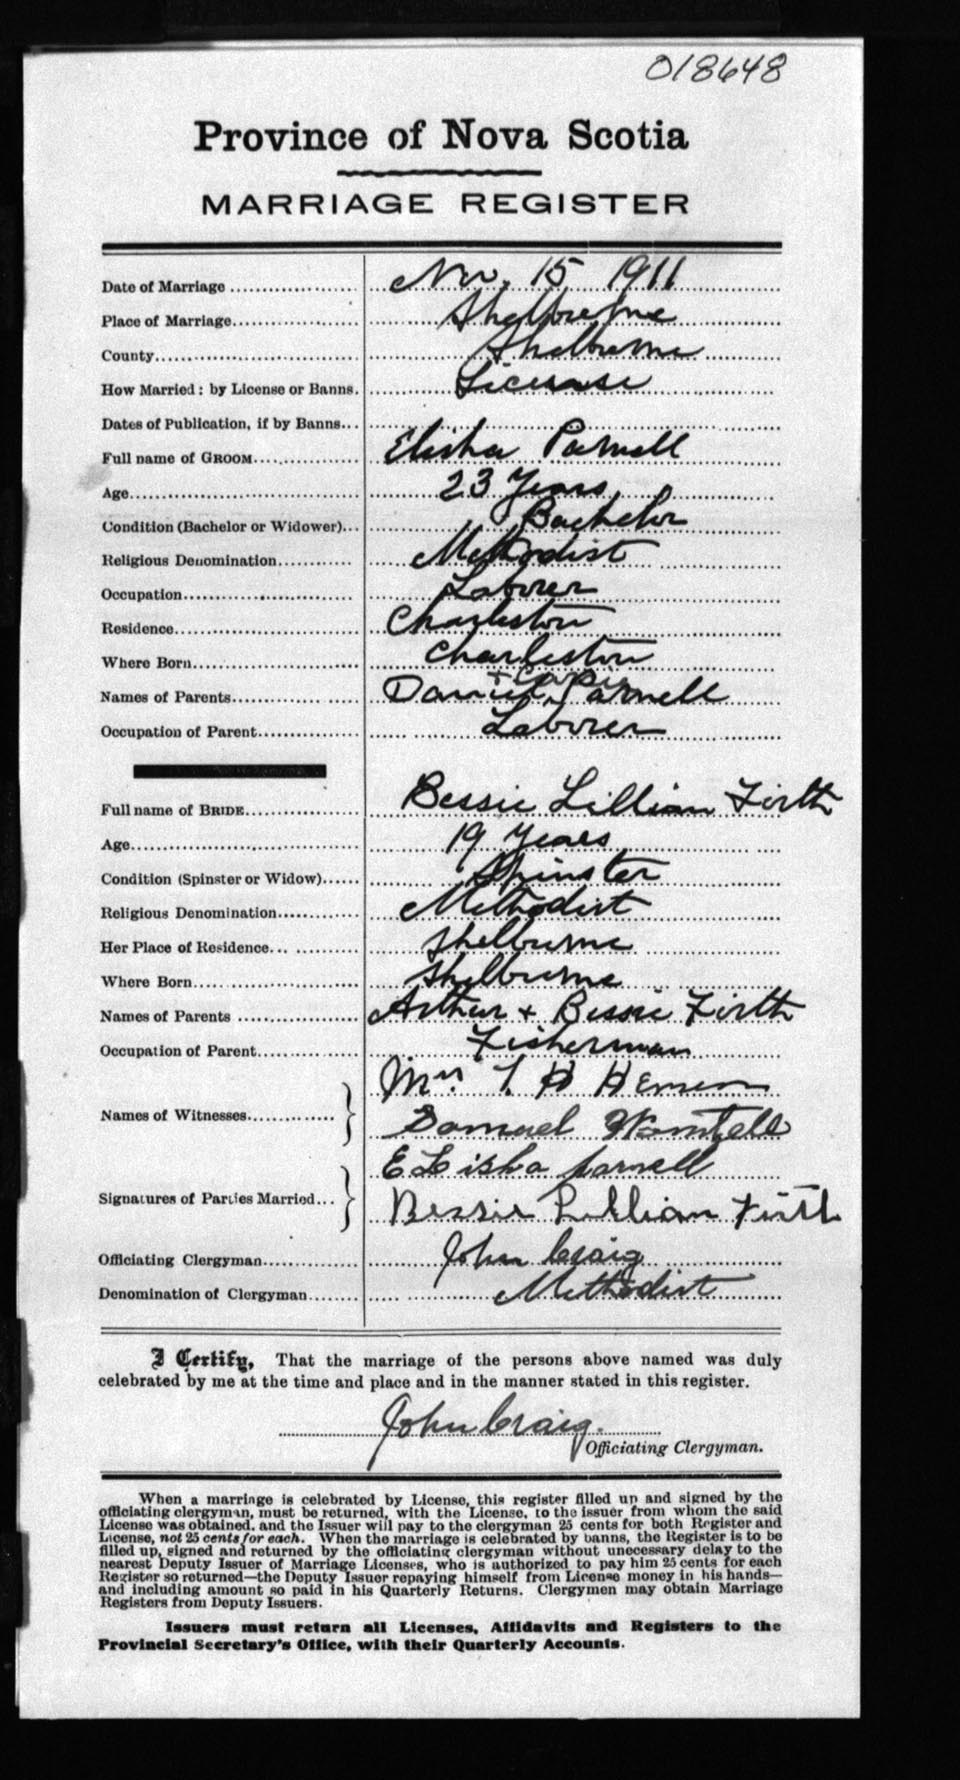 018648
Province of Nova Scotia
MARRIAGE REGISTER
Date of Marriage Nov. 15 1911
Place of Marriage Shelburne
County Shelburne
How Married: by License or Banns. License
Dates of Publication, if by Banns
Full name of GROOM Elisha Parnell
Age 23 Years
Condition (Bachelor or Widower) Bachelor
Religious Denomination Methodist
Occupation Laborer
Residence Charleston
Where Born Charleston
Names of Parents Daniel + Parnell
Occupation of Parent Laborer
Full name of BRIDE Bessie Lillian Firth
Age 19 Years
Condition (Spinster or Widow) Spinster
Religious Denomination Methodist
Her Place of Residence Shelburne
Where Born Shelburne
Names of Parents Arthur + Bessie Firth
Occupation of Parent Fisherman
Names of Witnesses Mrs. T. H
Samuel
Signatures of Parties Married ELisha parnell
Bessie Lillian Firth
Officiating Clergyman John Craig
Denomination of Clergyman Methodist
I Certify, That the marriage of the persons above named was duly
celebrated by me at the time and place and in the manner stated in this register.
John Craig.
Officiating Clergyman.
When a marriage is celebrated by License, this register filled up and signed by the
officiating clergyman, must be returned, with the License, to the issuer from whom the said
License was obtained, and the Issuer will pay to the clergyman 25 cents for both Register and
License, not 25 cents for each. When the marriage is celebrated by banns, the Register is to be
filled up, signed and returned by the officiating clergyman without unnecessary delay to the
nearest Deputy Issuer of Marriage Licenses, who is authorized to pay him 25 cents for each
Register so returned—the Deputy Issuer repaying himself from License money in his hands—
and including amount so paid in his Quarterly Returns. Clergymen may obtain Marriage
Registers from Deputy Issuers.
Issuers must return all Licenses, Affidavits and Registers to the
Provincial Secretary's Office, with their Quarterly Accounts.